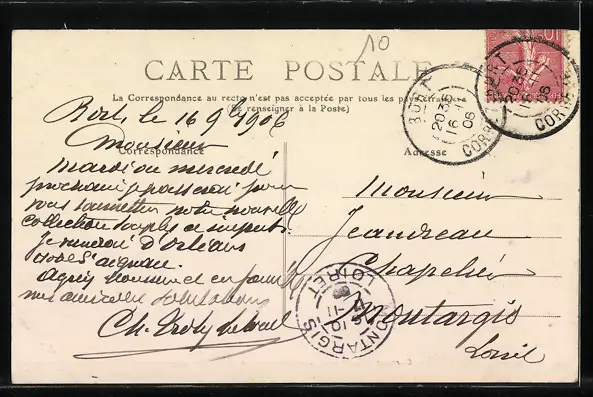 10
CARTE POSTALE
La Correspondance au recto n'est pas acceptée par tous les pays étrangers
(Se renseigner à la Poste)
BORT
20 35
16 -11
06
CORRÈZE
Bort, le 16 9bre 1906
Correspondance
Adresse
Monsieur
Mardi ou mercredi
prochain je passerai pour
vous soumettre notre nouvelle
collection souples et
Je d'Orléans
Agréez Monsieur et
mes amicales salutations
Ch.
Monsieur
Jeandreau
Chapelier
Montargis
Loiret
MONTARGIS
LOIRET